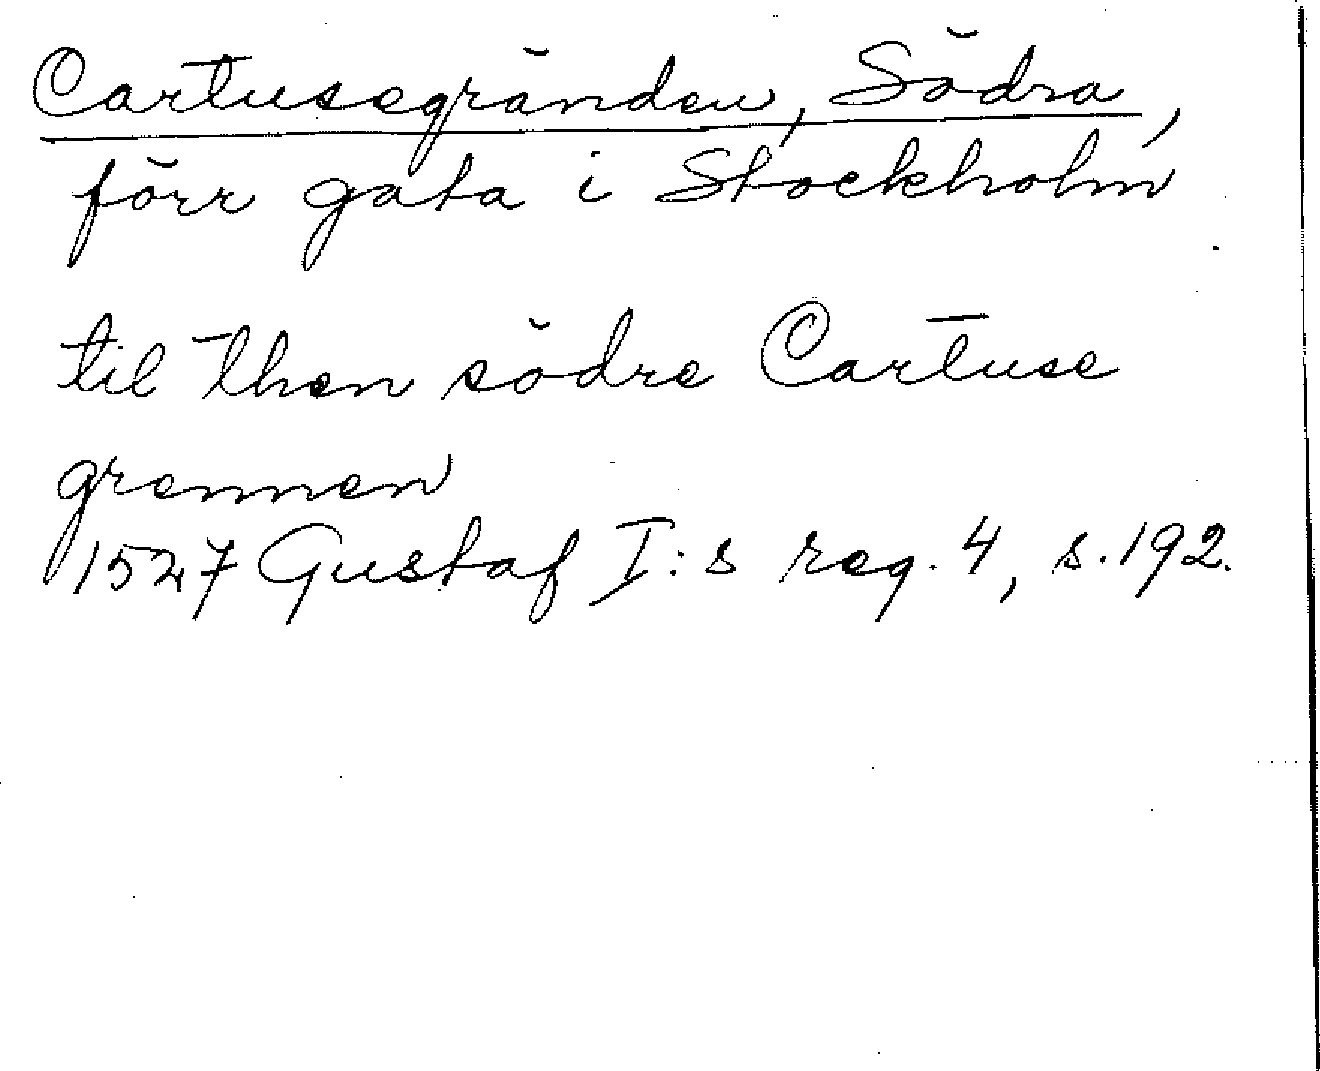 Cartusegränden, Södra,
förr gata i Stockholm
til then södre Cartuse
grennen
1527 Gustaf I:s reg. 4, s. 192.